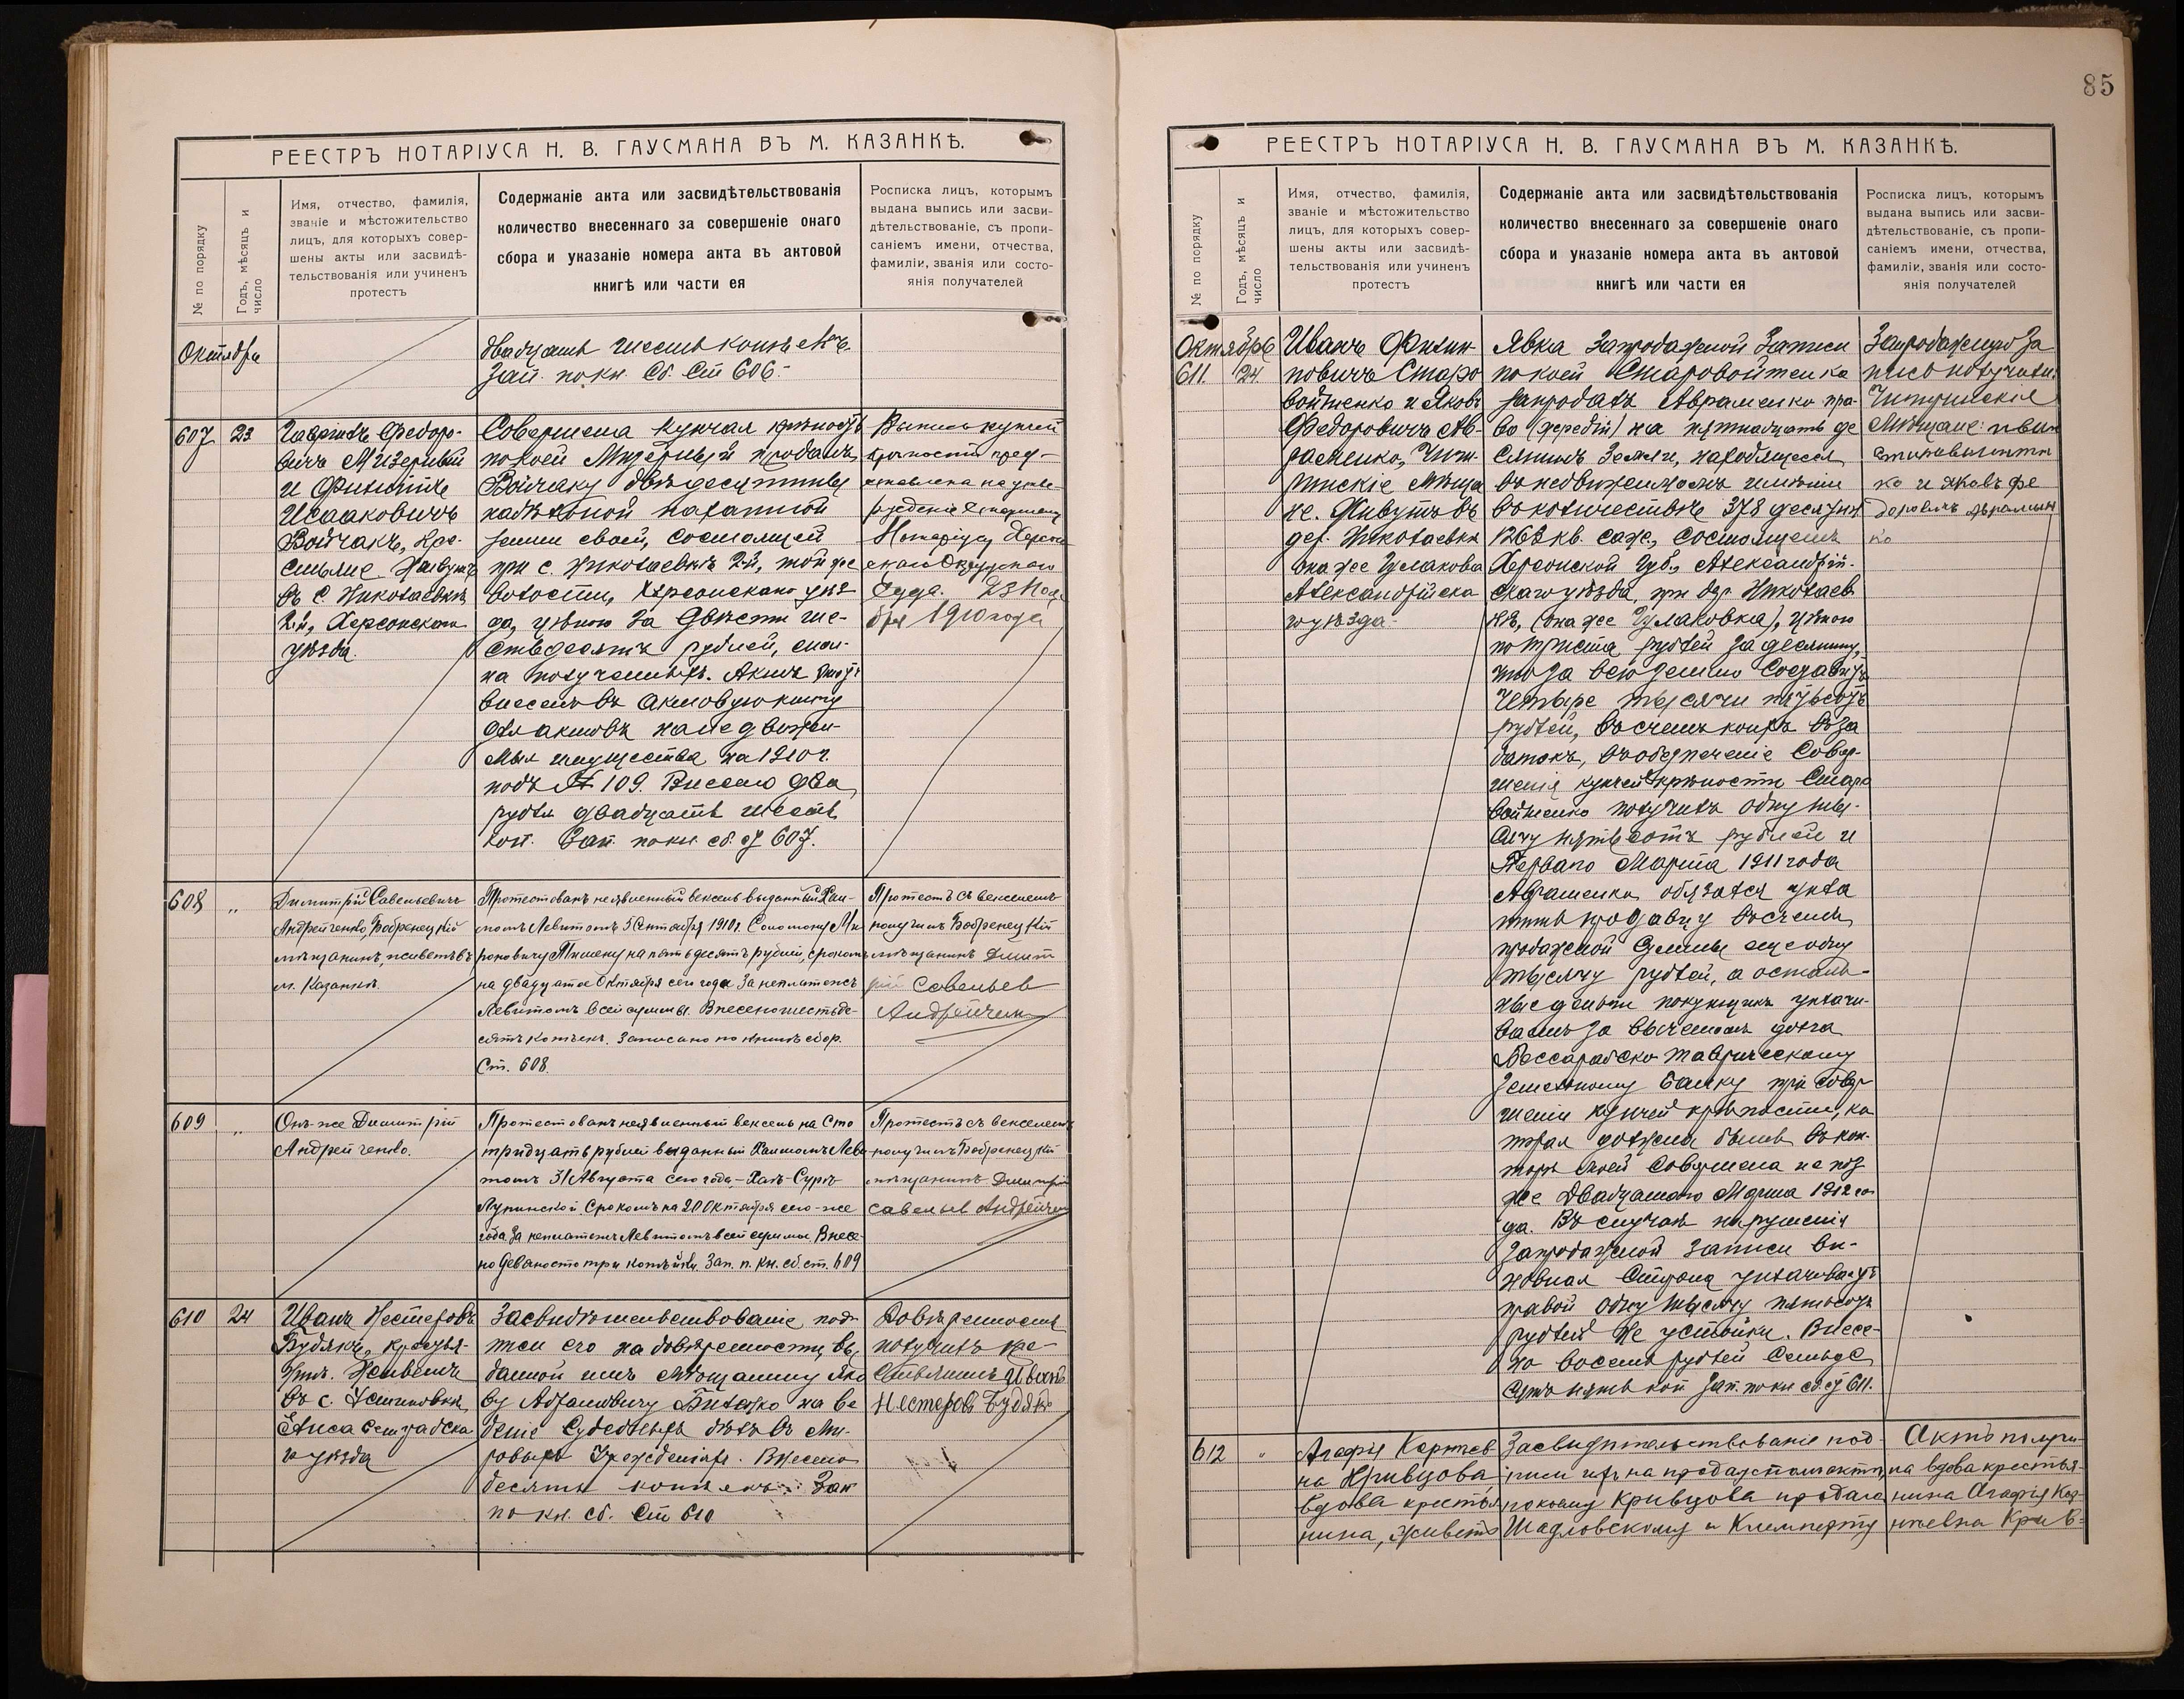 85
РЕЕСТРЪ НОТАРІУСА Н. В. ГАУСМАНА ВЪ М. КАЗАНКѢ.
№ по порядку
Годъ, мѣсяцъ и
число
Имя, отчество, фамилія,
званіе и мѣстожительство
лицъ, для которыхъ совер-
шены акты или засвидѣ-
тельствованія или учиненъ
протестъ
Содержаніе акта или засвидѣтельствованія
количество внесеннаго за совершеніе онаго
сбора и указаніе номера акта въ актовой
книгѣ или части ея
Росписка лицъ, которымъ
выдана выпись или засви-
дѣтельствованіе, съ пропи-
саніемъ имени, отчества,
фамиліи, званія или состо-
янія получателей
Октября
двадцать шесть копѣекъ.
Зап. по кн. Сб. Ст 606.-
607
23
Гавріилъ Федоро-
вичъ Мизерный
и Филиппъ
Исааковичъ
Войчакъ, кре-
стьяне. Живутъ
въ с. Николаевкѣ
2й, Херсонскаго
уѣзда.
Совершена купчая крѣпость
по коей Мизерный продалъ
Войчаку двѣ десятины
надѣльной пахатной
земли своей, состоящей
при с. Николаевкѣ 2й, той же
волости, Херсонскаго уѣз-
да, цѣною за Двѣсти ше-
стьдесятъ рублей, спол-
на полученныхъ. Актъ этотъ
внесенъ въ актовую книгу
для актовъ на недвижи-
мыя имущества на 1910 г.
подъ № 109. Внесено два
рубля двадцать шесть
коп. Зап. по кн. сб. ст 607.
Выпись купчей
крѣпости пред-
ставлена на утвер-
жденіе Старшему
Нотаріусу Херсон-
скаго Окружнаго
Суда. 23 Ноя
бря 1910 года
608
„
Димитрій Савельевичъ
Андрейченко, Бобринецкій
мѣщанинъ, живетъ въ
м. Казанкѣ.
Протестованъ неявленный вексель выданный Хаи-
момъ Левитомъ 5 Сентября 1910 г. Соломону
на пятьдесятъ рублей, срокомъ
на двадцатое Октября сего года за неплатежъ
Левитомъ всей суммы. Внесено шестьде-
сятъ копѣекъ. Записано по книгѣ сбор.
Ст. 608.
Протестъ съ векселемъ
получилъ Бобринецкій
мѣщанинъ Дмит
рій Савельев
Андрейченко
609
„
Онъ-же Димитрій
Андрейченко.
Протестованъ неявленный вексель на Сто
тридцать рублей выданный Хаимомъ Леви
томъ 31 Августа сего года
Срокомъ на 20 Октября сего-же
года. За неплатежъ Левитомъ всей суммы. Внесе-
но девяносто три копѣйки. Зап. п. кн. сб. ст. 609
Протестъ съ векселемъ
получилъ Бобринецкій
мѣщанинъ Дмитрій
савельев Андрейчен
610
24
Иванъ Нестеровъ
Будякъ, крестья-
нинъ. Живетъ
въ с. Устиновкѣ,
Елисаветградска
го уѣзда
Засвидѣтельствованіе под-
писи его на довѣренности, вы-
данной имъ мѣщанину Яко
ву на ве
деніе Судебныхъ дѣлъ въ Ми-
ровыхъ Учрежденіяхъ. Внесено
десять копѣекъ. Зап
по кн. сб. Ст 610
Довѣренность
получилъ кре-
стьянинъ Иванъ
Нестеровъ Будякъ
РЕЕСТРЪ НОТАРІУСА Н. В. ГАУСМАНА ВЪ М. КАЗАНКѢ.
№ по порядку
Годъ, мѣсяцъ и
число
Имя, отчество, фамилія,
званіе и мѣстожительство
лицъ, для которыхъ совер-
шены акты или засвидѣ-
тельствованія или учиненъ
протестъ
Содержаніе акта или засвидѣтельствованія
количество внесеннаго за совершеніе онаго
сбора и указаніе номера акта въ актовой
книгѣ или части ея
Росписка лицъ, которымъ
выдана выпись или засви-
дѣтельствованіе, съ пропи-
саніемъ имени, отчества,
фамиліи, званія или состо-
янія получателей
Октября
611.
24.
Иванъ Филип-
повичъ Старо
войтенко и Яковъ
Федоровичъ Ав-
раменко, Чиги-
ринскіе Мѣща
не. Живутъ въ
дер. Николаевкѣ
она же Гулаковка
Александрійска
го уѣзда.
Явка Запродажной Записи
по коей Старовойтенко
запродалъ Авраменко пра-
во (жеребій) на пятнадцать де
сятинъ Земли, находящееся
въ недвижимомъ имѣніи
въ количествѣ 378 десятин
126½ кв. саж., состоящемъ
Херсонской губ., Александрій-
скаго уѣзда, при дер. Николаев
кѣ, (она же Гулаковка), цѣною
по триста рублей за десятину,
что за всю землю Составитъ
Четыре тысячи пятьсотъ
рублей, въ счетъ коихъ въ за
датокъ, въ обезпеченіе Совер-
шенія купчей крѣпости Старо
войтенко получилъ одну ты-
сячу пятьсотъ рублей и
Перваго Марта 1911 года
Авраменко обязался упла
тить продавцу въ счетъ
продажной Суммы еще одну
тысячу рублей, а осталь-
ныя деньги покупщикъ уплачи-
ваетъ за вычетомъ долга
Бессарабско-Таврическому
Земельному Банку при совер-
шеніи купчей крѣпости, ко
торая должна быть въ кон-
торѣ моей Совершена не поз
же Двадцатаго Марта 1912 го
да. Въ случаѣ нарушенія
запродажной Записи ви-
новная Сторона уплачиваетъ
правой одну тысячу пятьсотъ
рублей неустойки. Внесе-
но восемь рублей Семьде
сятъ пять коп Зап. по кн сб. ст 611.
Запродажную За
пись получили:
Чигиринскія
Мѣщане: иван
ко и яковъ фе
доровичъ авраменко
ко
612
„
Агафія Карпьев
на Кривцова,
вдова крестья
нина, живетъ
Засвидѣтельствованіе под-
писи ихъ на продажномъ актѣ,
по коему Кривцова продала
Шадловскому и Климперту
Актъ получи-
ла вдова крестья-
нина Агафія Кар
пьевна Крив-